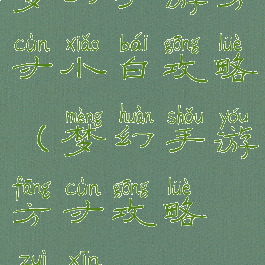 cùn xiǎo bái gōng lüè
寸小白攻略
mèng huàn shǒu yóu
(梦幻手游
fāng cùn gōng lüè
方寸攻略
zuì xīn